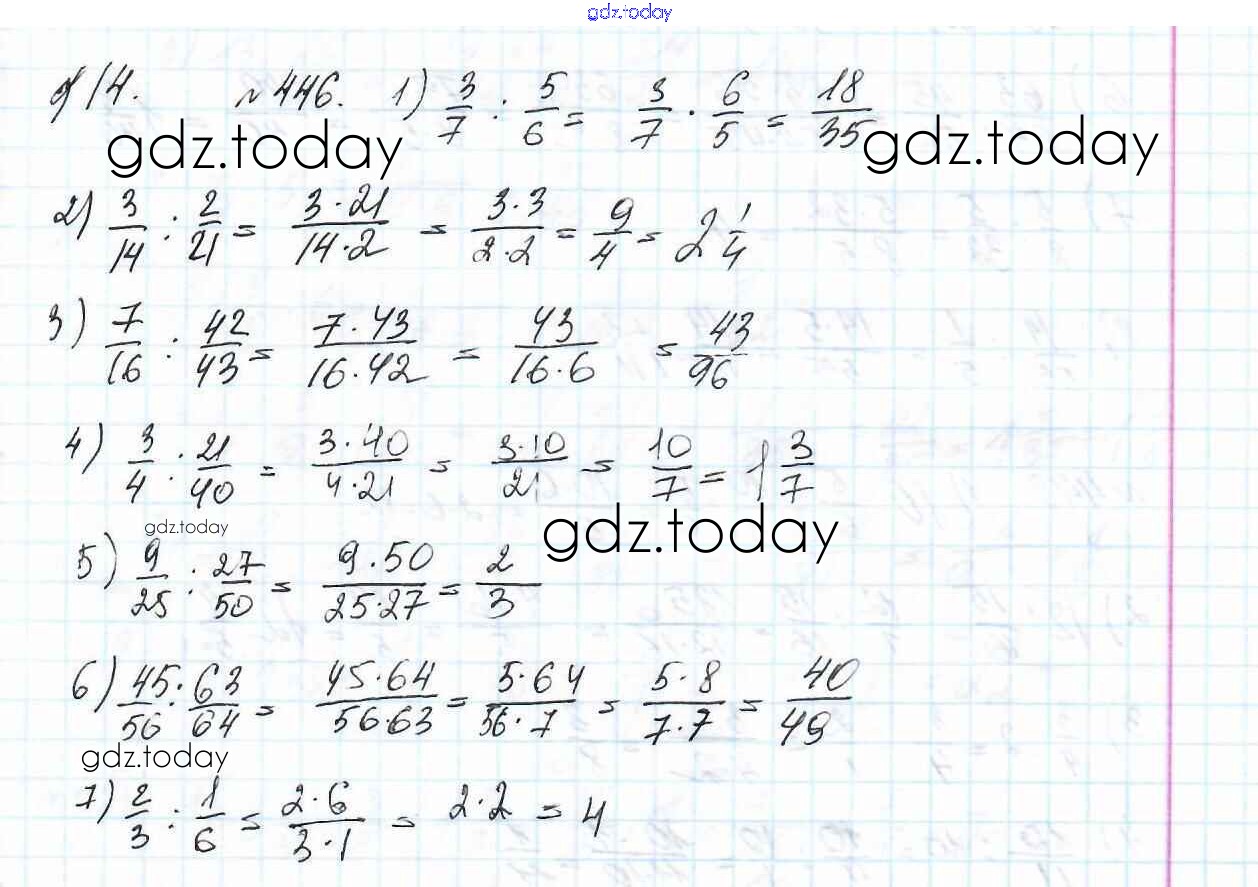 gdz.today
§14. №446. 1) 3/7 : 5/6 = 3/7 · 6/5 = 18/35
gdz.today gdz.today
2) 3/14 : 2/21 = 3·21/14·2 = 3·3/2·2 = 9/4 = 2 1/4
3) 7/16 : 42/43 = 7·43/16·42 = 43/16·6 = 43/96
4) 3/4 : 21/40 = 3·40/4·21 = 3·10/21 = 10/7 = 1 3/7
gdz.today gdz.today
5) 9/25 : 27/50 = 9·50/25·27 = 2/3
6) 45/56 : 63/64 = 45·64/56·63 = 5·64/56·7 = 5·8/7·7 = 40/49
gdz.today
7) 2/3 : 1/6 = 2·6/3·1 = 2·2 = 4